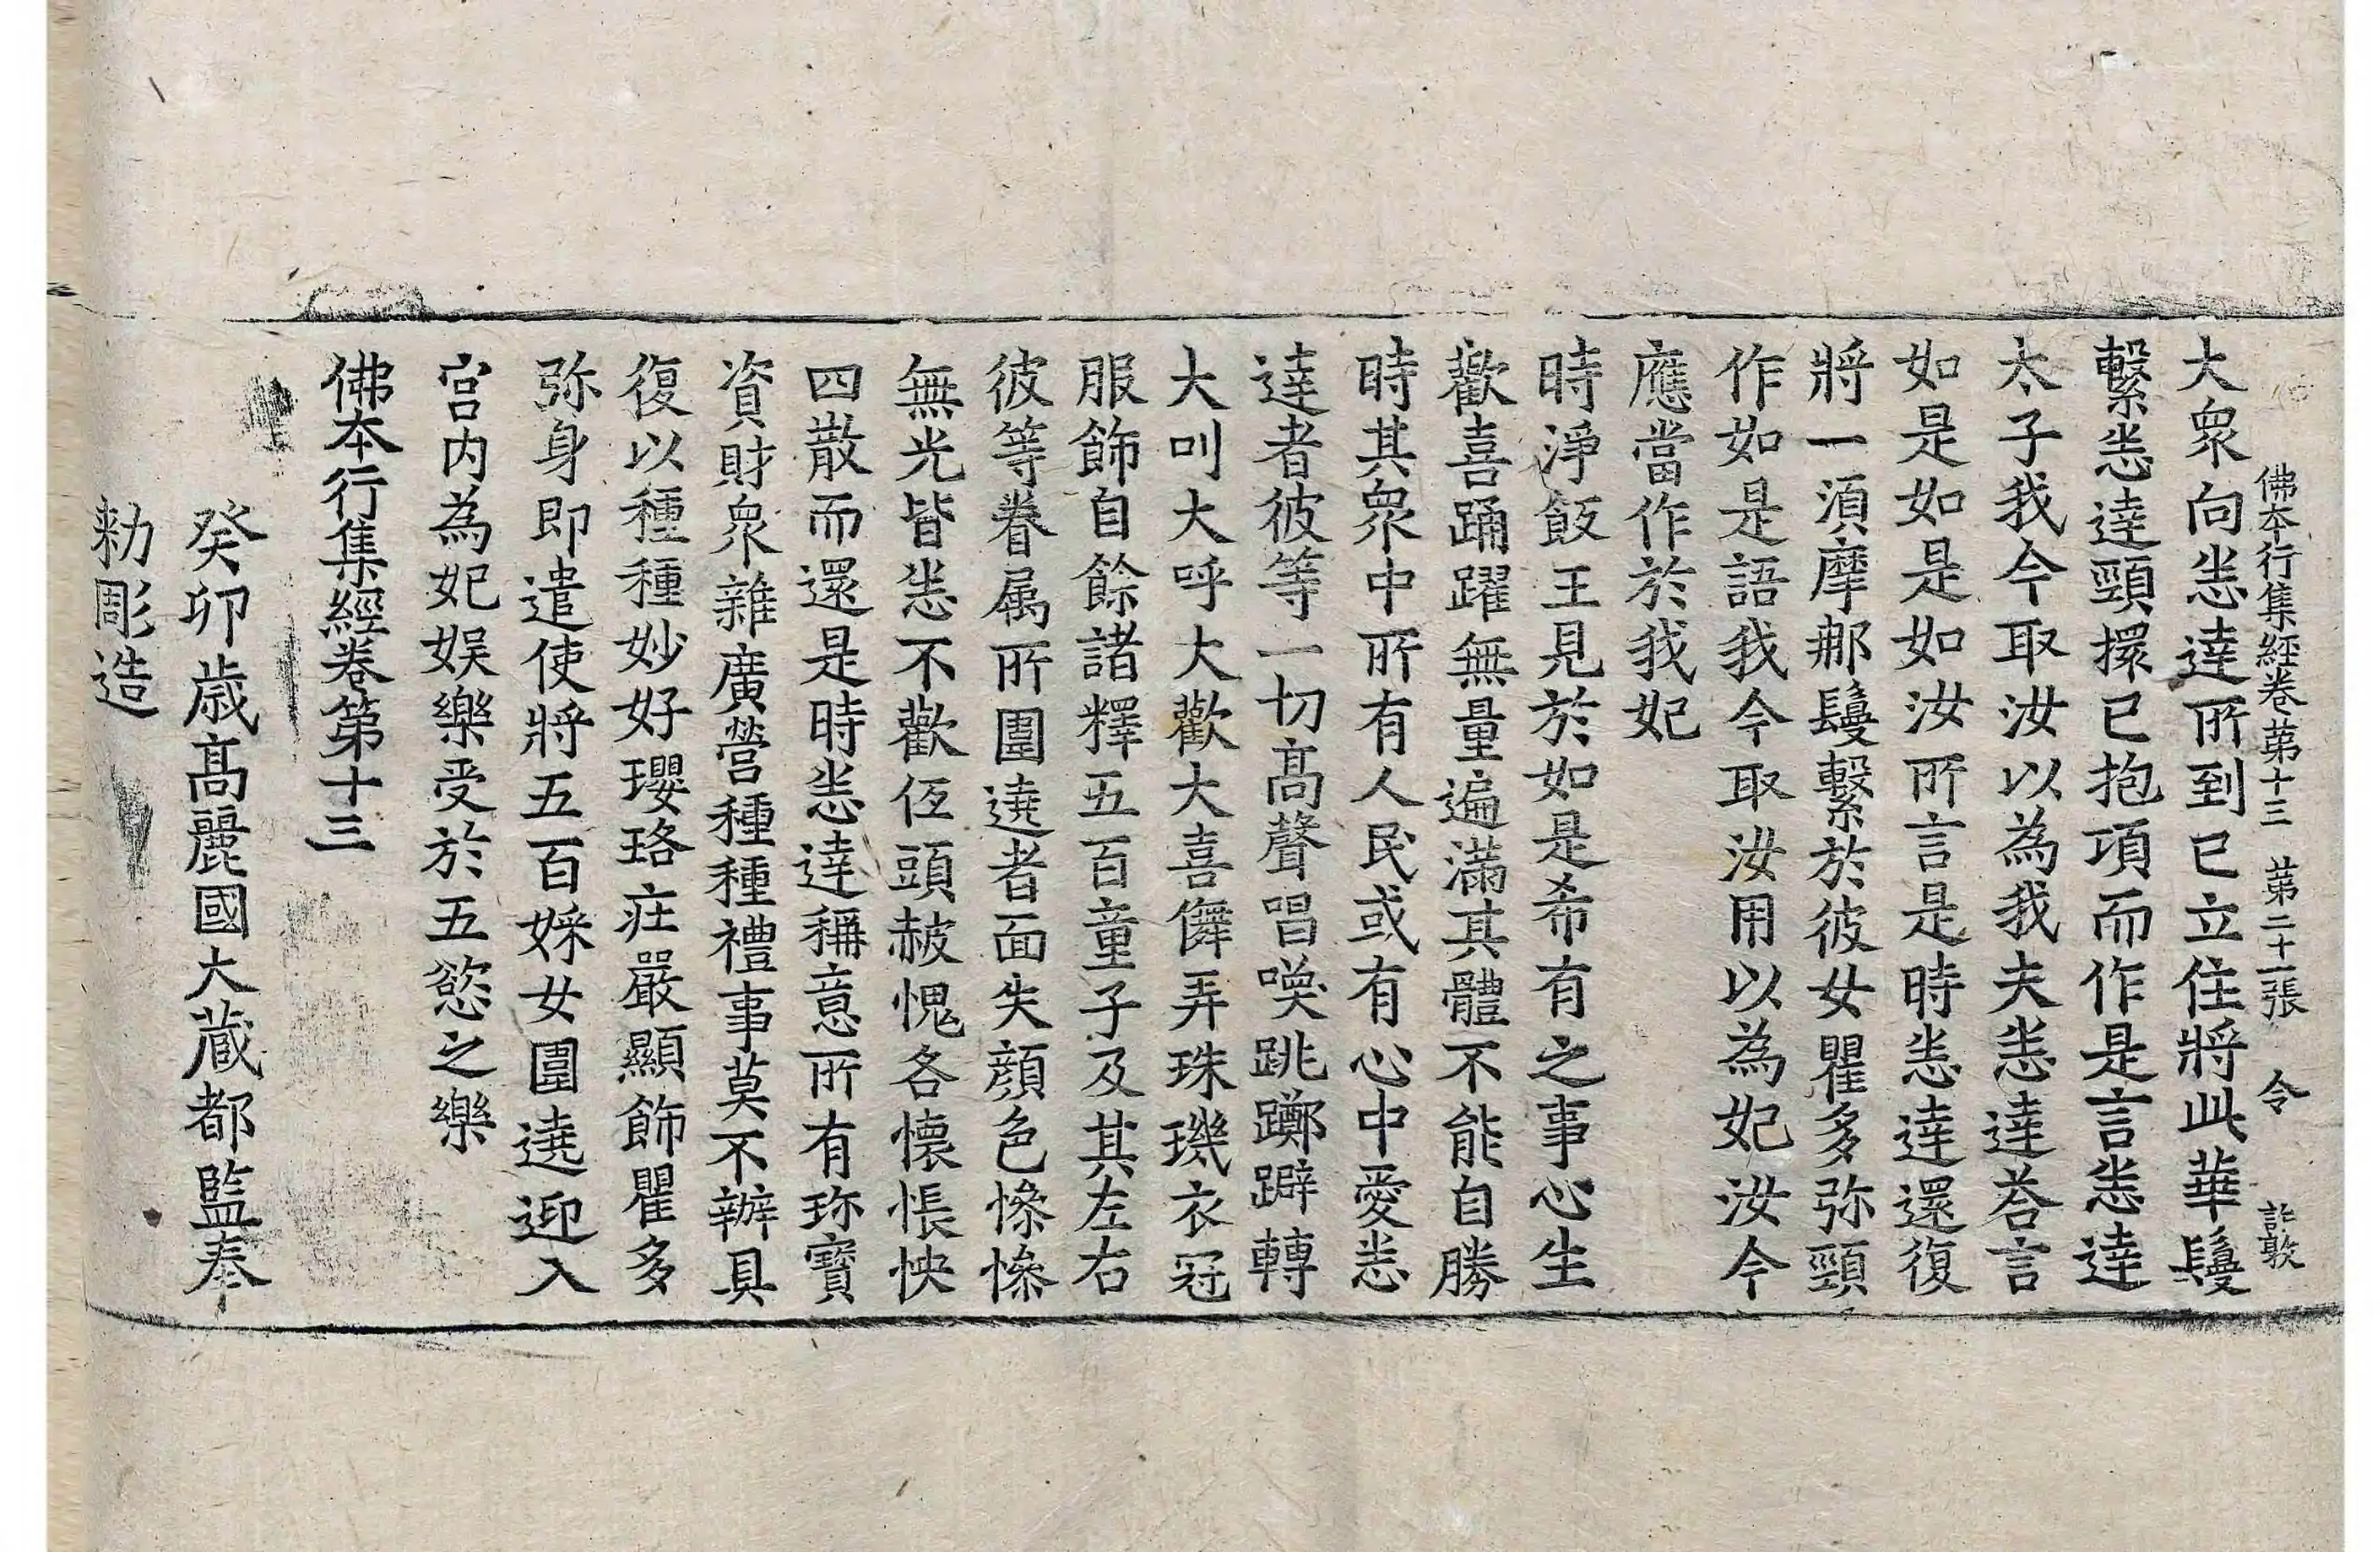 佛本行集經卷苐十三 苐二十一張 令 許敦
大眾向悉達所到已立住將此華鬘
繫悉達頸擐已抱項而作是言悉達
太子我今取汝以為我夫悉達荅言
如是如是如汝所言是時悉達還復
將一須摩那鬘繫於彼女瞿多弥頸
作如是語我今取汝用以為妃汝今
應當作於我妃
時淨飯王見於如是希有之事心生
歡喜踊躍無量遍滿其體不能自勝
時其眾中所有人民或有心中愛悉
達者彼等一切髙聲唱喚跳躑躃轉
大叫大呼大歡大喜儛弄珠璣衣冠
服飾自餘諸釋五百童子及其左右
彼等眷属所圍遶者面失顔色慘慘
無光皆悉不歡低頭赧愧各懷悵怏
四散而還是時悉達稱意所有珎寶
資財眾雜廣營種種禮事莫不辦具
復以種種妙好瓔珞庄嚴顯飾瞿多
弥身即遣使將五百婇女圍遶迎入
宮内為妃娛樂受於五慾之樂
佛本行集經卷第十三
癸卯歳髙麗國大藏都監奉
勑彫造